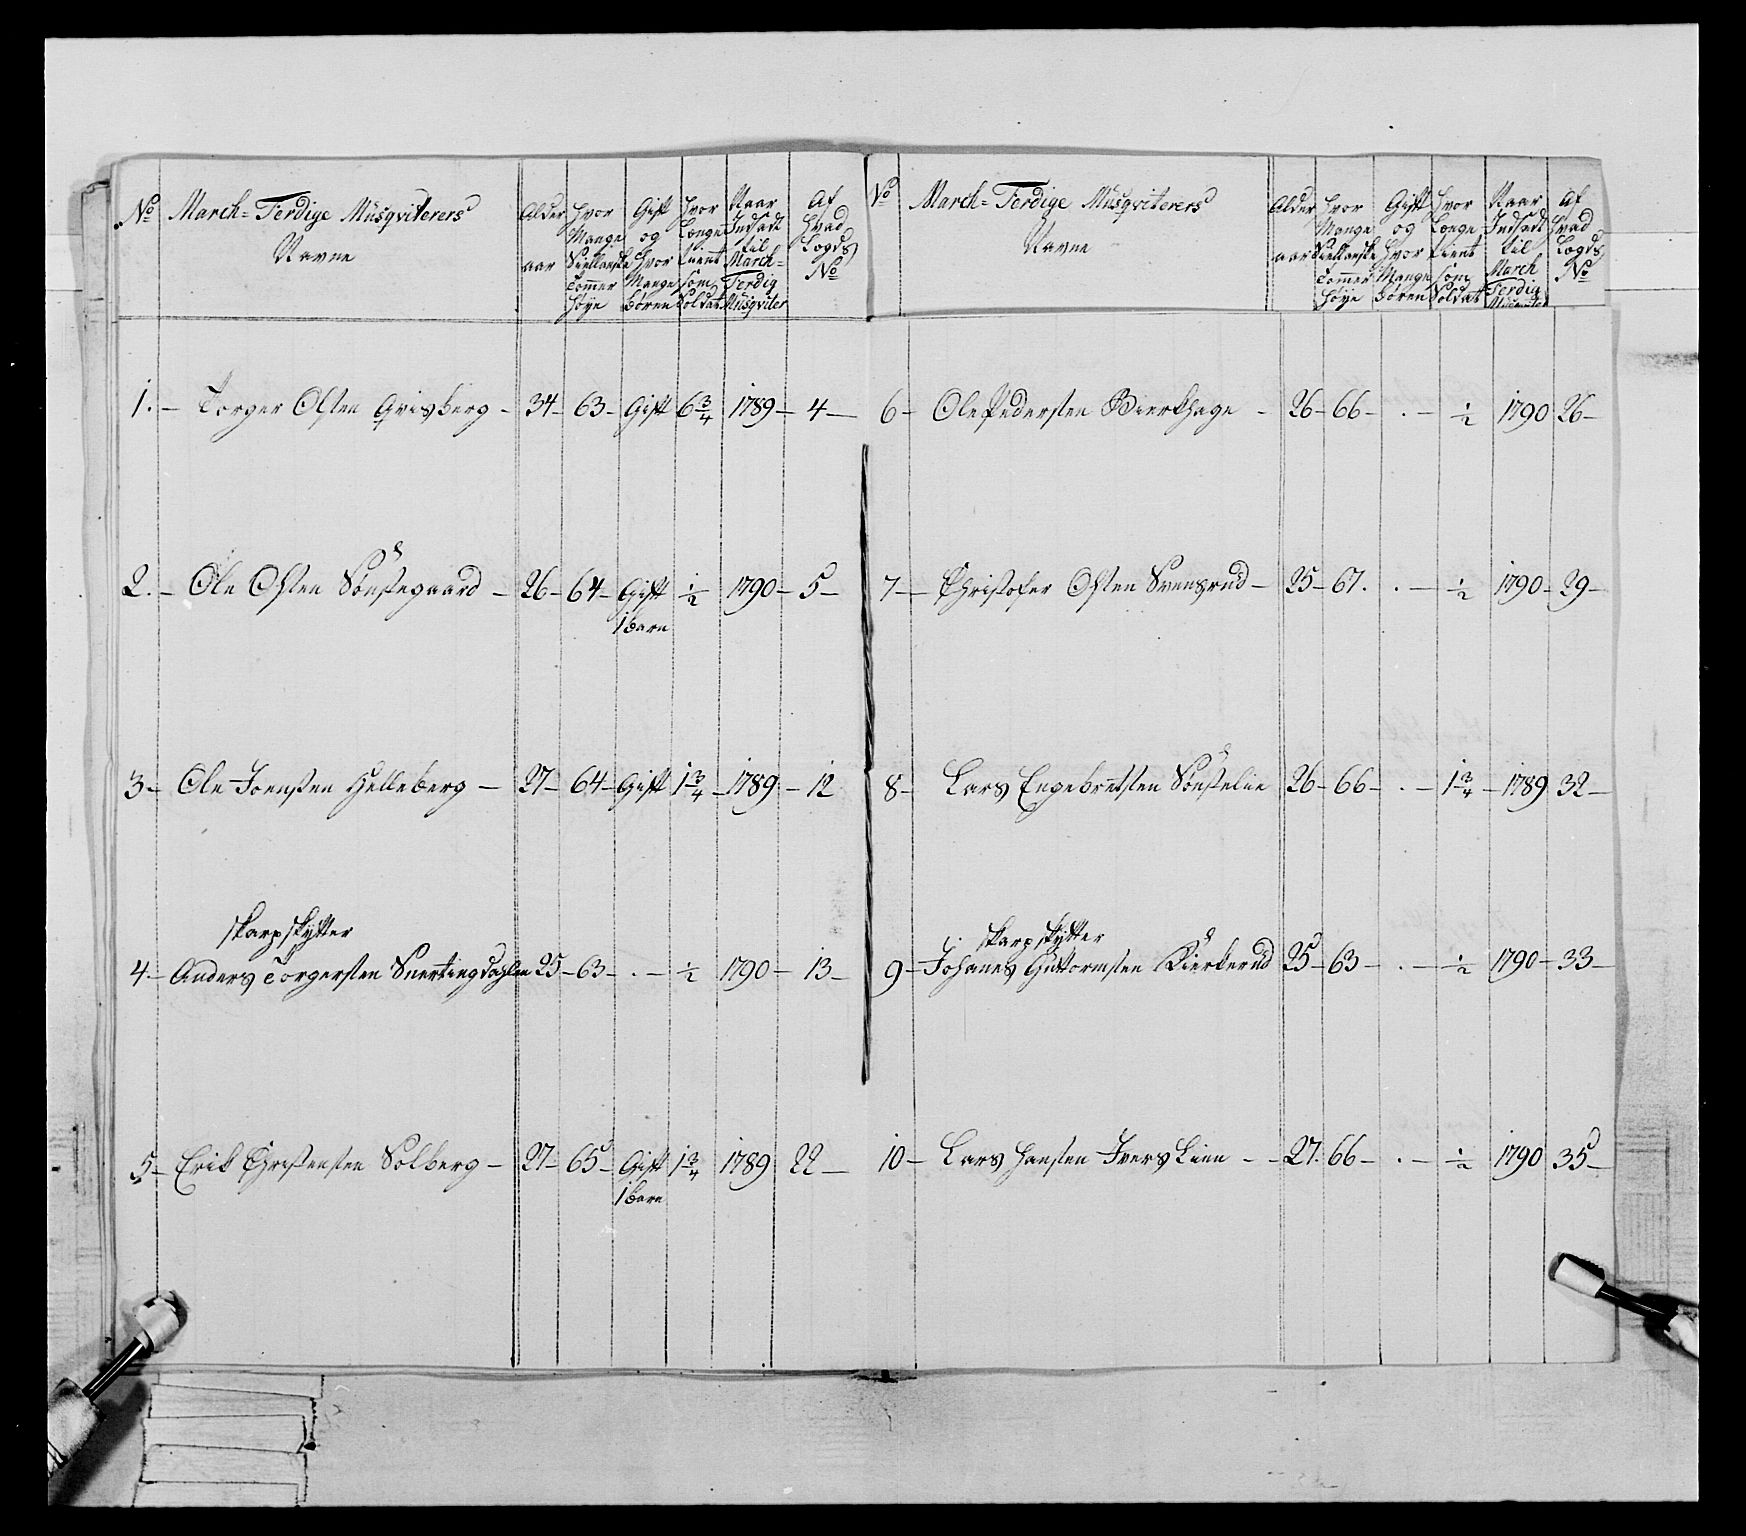 No March-Ferdige Musqviterers Navne Alder aar Hvor Mange Siellanske Tommer Høye Gift og Hvor Mange Børen Hvor Længe Tient som Soldat Naar Indsadt til March-Ferdig Musqviter Af Hvad Logds No
1. - Torger Olsen Qvisberg - 34 - 63 - Gift 6 3/4 1789 - 4 -
2. - Ole Olsen Sønstegaard - 26 - 64 - Gift 1/2 1790 - 5 -
1 barn
3 - Ole Joensen Helleberg - 27 - 64 - Gift 1 3/4 - 1789 - 12
skarpskytter
4 - Anders Torgersen Snertingdahlen 25 - 63 - . - 1/2 1790 - 13 -
5 - Erik Christensen Solberg - 27 - 65 - Gift 1 3/4 1789 22 -
1 barn
No March-Ferdige Musqviterers Navne Alder aar Hvor Mange Siellanske Tommer Høye Gift og Hvor Mange Børen Hvor Længe Tient som Soldat Naar Indsadt til March Ferdig Musqviter Af Hvad Logds No
6 - Ole Pedersen Bierkhage - 26 - 66 - . - 1/2 1790 26 -
7 - Christofer Olsen Svensrud - 25 - 67 . . - 1/2 1790 - 29 -
8 - Lars Engebretsen Sønstelie 26 - 66 - . - 1 3/4 - 1789 32 -
skarpskytter
9 - Johanes Guttormsen Bierkerud 25 - 63 - . - 1/2 1790 - 33 -
10 - Lars Hansen Ivers Lien - - 27. 66 - . - 1/2 1790 35 -